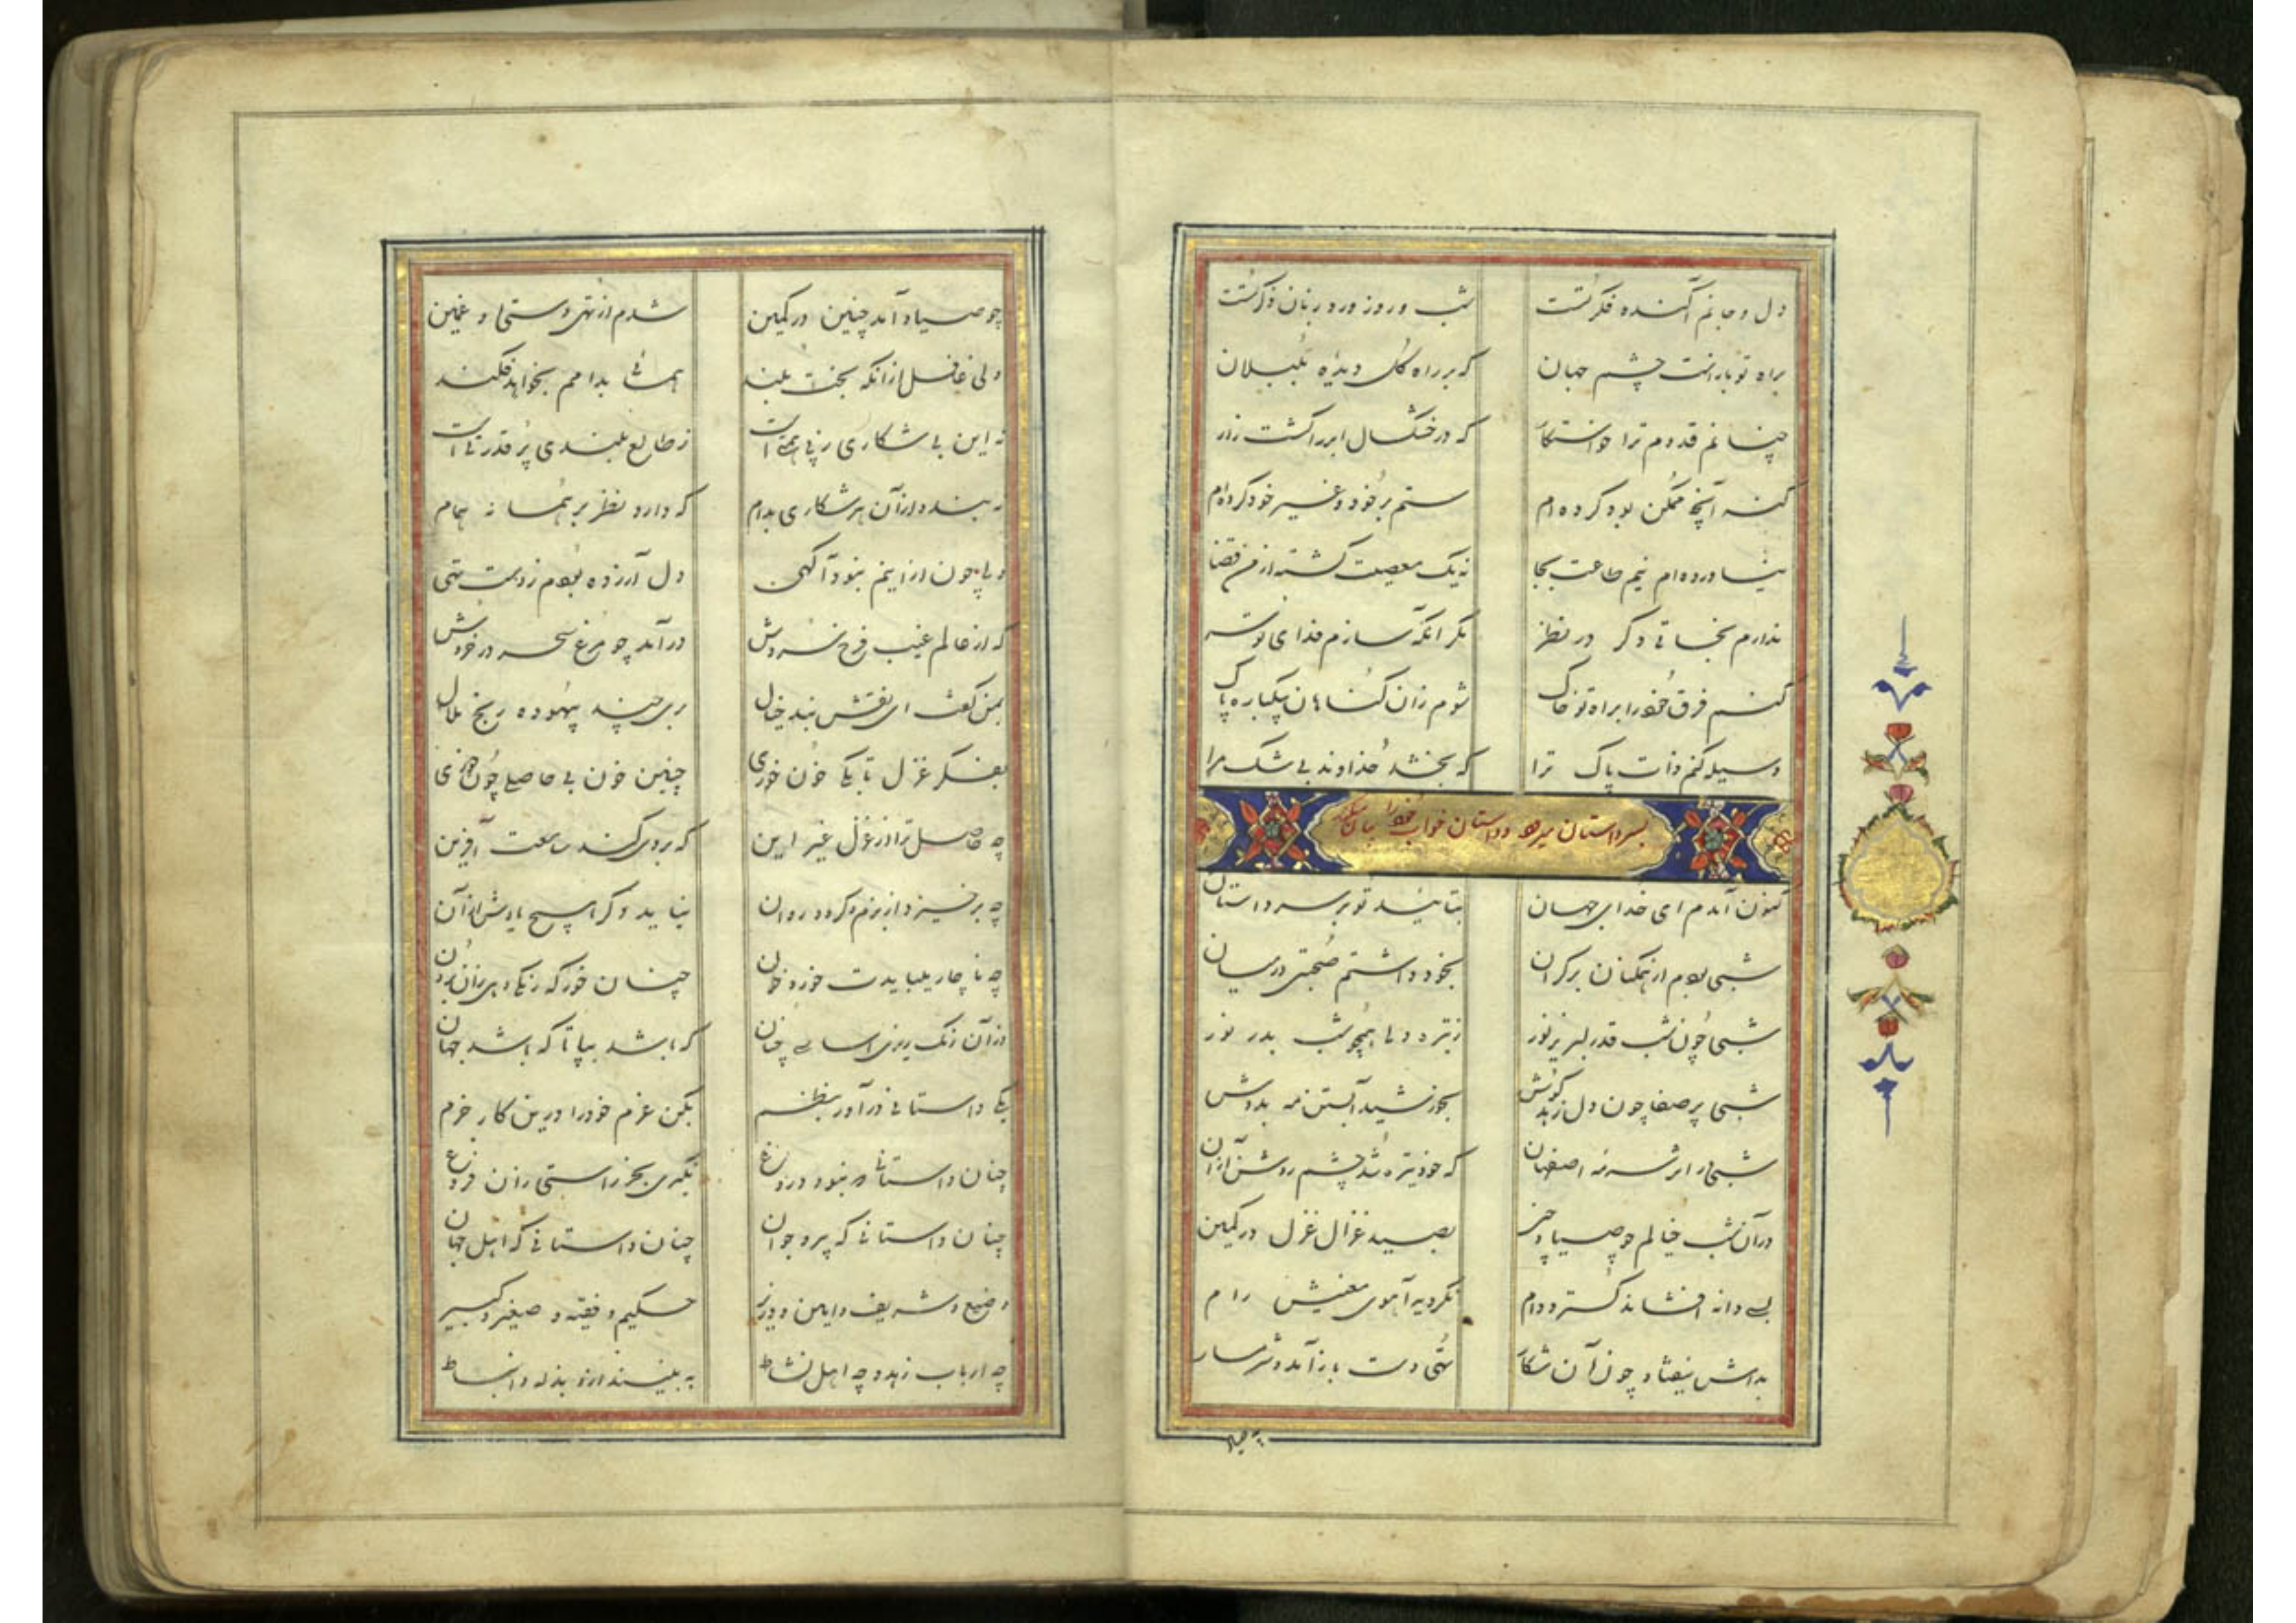 دل و جانم آکنده فکر تست شب و روز ورد زبان ذکر تست
براه تو بازست چشم جهان که بر راه گل دیدهٔ بلبلان
چنانم قدوم ترا خواستکار که در خشکسال ابر را کشت زار
کنه آنچه ممکن بود کرده‌ام ستم بر خود و غیر خود کرده‌ام
نیاورده‌ام نیم طاعت بجا نه یک معصیت گشته از من قضا
ندارم نجاتی دگر در نظر مگر آنکه سازم فدای تو سر
کنم فرق خود را براه تو خاک شوم زان گناهان بیکباره پاک
وسیله کنم ذات پاک ترا که بخشد خداوند بی شک مرا
بسر داستان میرود و داستان خواب خود را بیان میکند
کنون آمدم ای خدای جهان بتأئید تو بر سر داستان
شبی بودم از همکنان بر کران بخود داشتم صحبتی در میان
شبی چون شب قدر لبریز نور ز تیره دلی همچو شب بدر نور
شبی پر صفا چون دل زهد کوش بخورشید آبستن مه بدوش
شبی در اثر سرمه اصفهان که خود تیره شد چشم روشن از آن
در آن شب خیالم چو صیاد چین بصید غزال غزل در کمین
بسی دانه افشاند گسترد دام نگردید آهوی معنیش رام
بدامش نیفتاد چون آن شکار تهی دست باز آمد و شرمسار
چو صیاد آمد چنین در کمین شدم از تهی دستی او غمین
ولی غافل از آنکه بخت بلند همائی بدامم بخواهد فکند
نه این بی شکاری ز پی همتی است ز طالع بلندی پر قدرتی است
نه بندد از آن هر شکاری بدام که دارد نظر بر همانه همام
ولی چون از اینم نبود آگهی دل آزرده بودم ز دست تهی
که از عالم غیب فرخ سروش درآمد چو مرغ سحر در خروش
بمن گفت ای نقش بند خیال بری چند بیهوده رنج ملال
بفکر غزل تا بکی خون خوری چنین خون بی حاصلی چون خوری
چه حاصل ترا از غزل غیر این که بروی کند سامعت آفرین
چه برخیزد از بزم و گردد روان نیاید دگر هیچ یادش از آن
چه ناچار میبایدت خورد خون چنان خور که رنگی دهی زان برون
از آن رنگ ریزی اساسی چنان که باشد بپا تا که باشد جهان
یکی داستانی درآور بنظم بکن عزم خود را درین کار جزم
چنان داستانی که نبود دروغ نگیری بجز راستی زان فروغ
چنان داستانی که پیر و جوان چنان داستانی که اهل جهان
وضیع و شریف و امین و وزیر حکیم و فقیه و صغیر و کبیر
چه ارباب زهد و چه اهل نشاط به بینند ازو بذله و انبساط